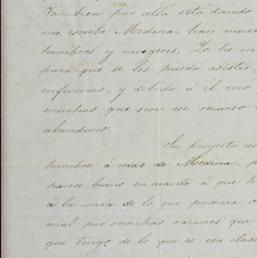 Tambien por allá está dando
me escribe Medina, han muer
hombres y mugeres. Yo he m
para que se los pueda asistir
enfermos, y debido á él cre
muchos que sin ese recurso
abandono.
Su proyecto de
hombre á mas de Medina, p
parece bueno en cuanto á que
á la mira de lo que pudiera o
mal por muchas razones que
que tengo de lo que es esa clas